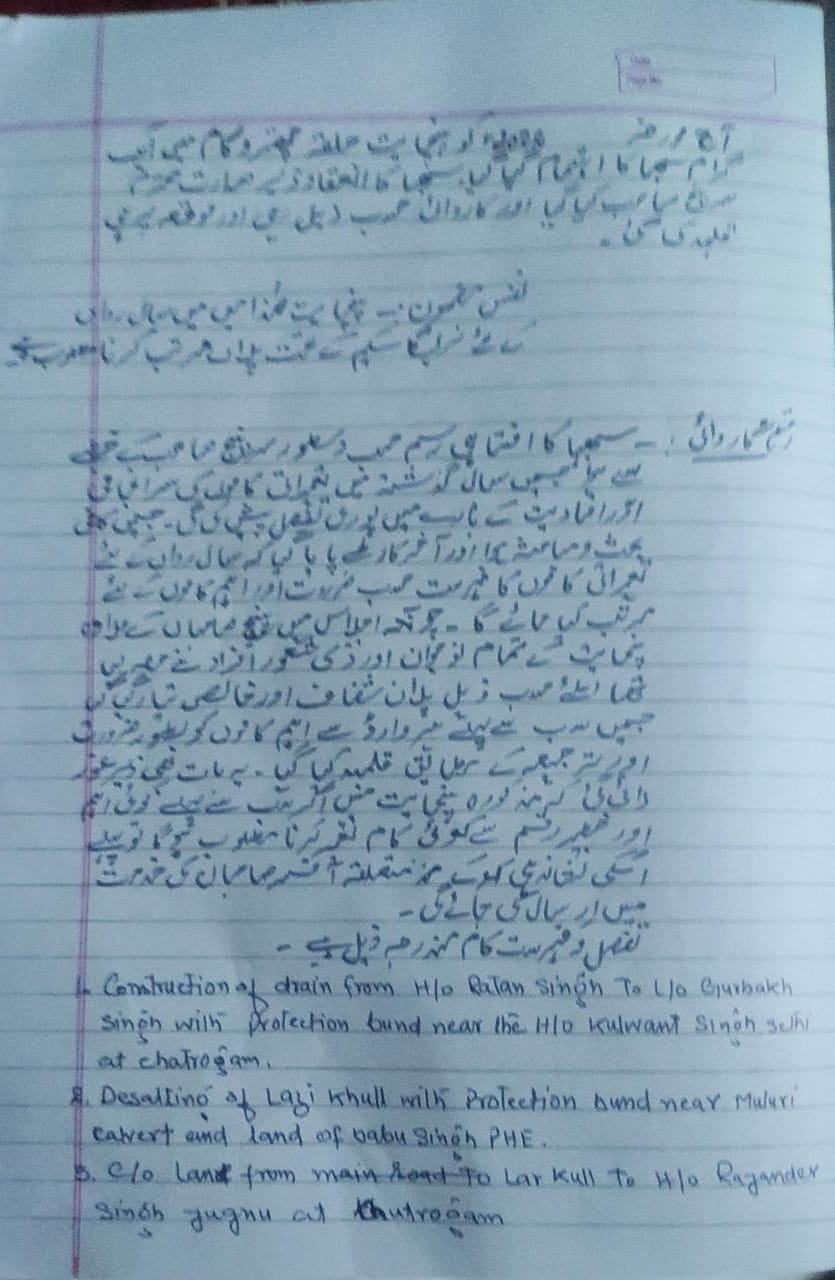 آج مورخہ کو پنچایت حلقہ چھتروگام میں ایک
گرام سبھا کا اہتمام کیا گیا۔ سبھا کا انعقاد زیر صدارت محترم
سرپنچ صاحب کیا گیا اور کاروائی حسب ذیل رہی اور موقعہ پر ہی
قلمبند کی گئی۔
نفس مضمون :۔ پنچایت ھٰذا میں سال رواں
کے لئے سکیم کے تحت پلان مرتب کرنا مطلوب ہے
:۔ سبھا کا افتتاحی رسم حسب دستور سرپنچ صاحب کے
سے ہوا جسمیں سال گذشتہ میں تعمیراتی کاموں کی
اور افادیت کے بارے میں پوری تفصیل پیش کی گئی۔ جسمیں کافی
بحث و مباحثہ ہوا اور آخر کار طے پایا گیا کہ سال رواں کے لئے
تعمیراتی کاموں کا فہرست حسب ضرورت اور اہم کاموں کے لئے
مرتب کیا جائے گا۔ چونکہ اجلاس میں پنچ صاحبان کے علاوہ
پنچایت کے تمام نوجوان اور ذی شعور افراد نے حصہ لیا
تھا اسلئے حسب ذیل پلان شفاف اور خالص تیار کیا گیا
جسمیں سب سے پہلے ہر وارڈ سے اہم کاموں کو بطور ضرورت
اور ترجیع کے مطابق قلمبند کیا گیا۔ یہ بات بھی زیر غور
لائی گئی کہ مذکورہ پنچایت میں اگر سب سے پہلے کوئی اہم
اور قسم سے کوئی کام کرنا مطلوب ہوگا تو پہلے
اسکی نشاندہی کرکے متعلقہ آفسر صاحبان کی خدمت
میں ارسال کی جائے گی۔
تفصیل و فہرست کام مندرجہ ذیل ہے۔
1. Contruction of drain from H/o Ratan Singh To L/o Gurbakh
Singh with Protection bund near the H/o Kulwant Singh Sethi
at Chatrogam.
2. Desalting of Lazi Khull with Protection bund near Muluri
calvert and land of babu Singh PHE.
3. C/o Land from main Road To Lar Kull To H/o Ragander
Singh Jugnu at Chutrogam